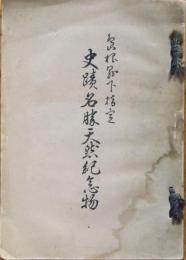 島根縣下指定
史蹟名勝天然紀念物